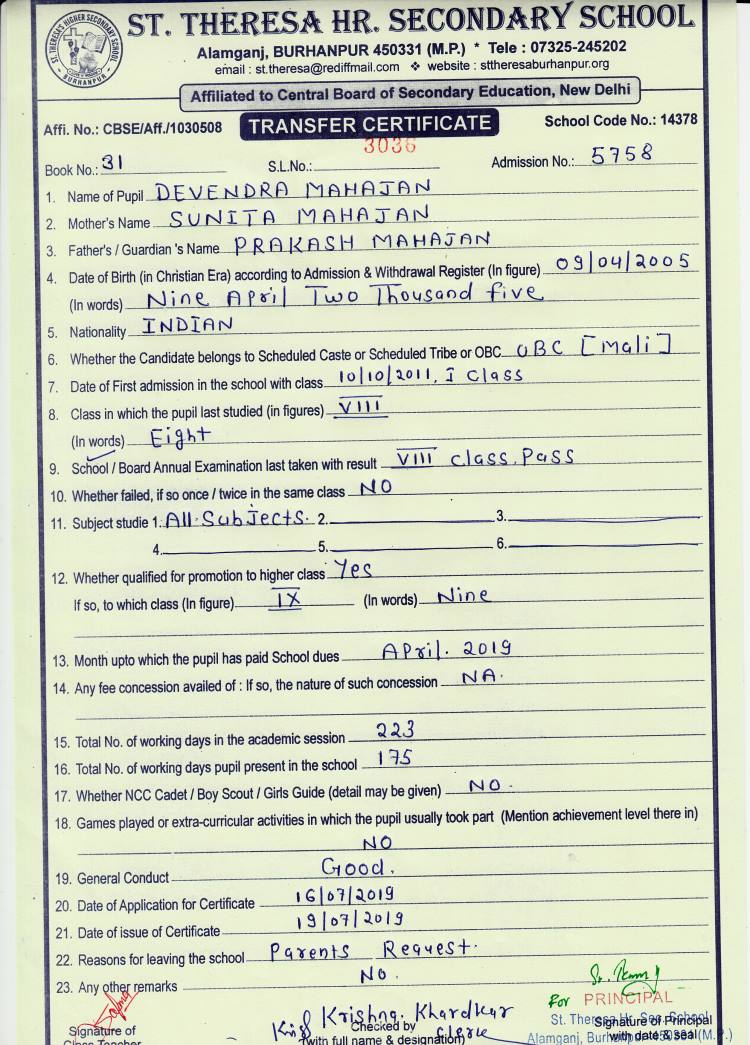 ST. THERESA'S HIGHER SECONDARY SCHOOL
BURHANPUR
ST. THERESA HR. SECONDARY SCHOOL
Alamganj, BURHANPUR 450331 (M.P.) * Tele : 07325-245202
email : st.theresa@rediffmail.com ❖ website : sttheresaburhanpur.org
Affiliated to Central Board of Secondary Education, New Delhi
Affi. No.: CBSE/Aff./1030508 TRANSFER CERTIFICATE School Code No.: 14378
Book No.: 31 S.L.No.: 3036 Admission No.: 5758
1. Name of Pupil DEVENDRA MAHAJAN
2. Mother's Name SUNITA MAHAJAN
3. Father's / Guardian 's Name PRAKASH MAHAJAN
4. Date of Birth (in Christian Era) according to Admission & Withdrawal Register (In figure) 09/04/2005
(In words) Nine April Two Thousand five
5. Nationality INDIAN
6. Whether the Candidate belongs to Scheduled Caste or Scheduled Tribe or OBC OBC [Mali]
7. Date of First admission in the school with class 10/10/2011, I Class
8. Class in which the pupil last studied (in figures) VIII
(In words) Eight
9. School / Board Annual Examination last taken with result VIII class. Pass
10. Whether failed, if so once / twice in the same class NO
11. Subject studie 1. All Subjects. 2. 3.
4. 5. 6.
12. Whether qualified for promotion to higher class Yes
If so, to which class (In figure) IX (In words) Nine
13. Month upto which the pupil has paid School dues April. 2019
14. Any fee concession availed of : If so, the nature of such concession NA.
15. Total No. of working days in the academic session 223
16. Total No. of working days pupil present in the school 175
17. Whether NCC Cadet / Boy Scout / Girls Guide (detail may be given) NO.
18. Games played or extra-curricular activities in which the pupil usually took part (Mention achievement level there in)
NO
19. General Conduct Good.
20. Date of Application for Certificate 16/07/2019
21. Date of issue of Certificate 19/07/2019
22. Reasons for leaving the school Parents Request.
23. Any other remarks No.
For PRINCIPAL
Krishna Khardkar
St. Theresa Hr. Sec. School
Signature of Checked by Clerk Signature of Principal
Class Teacher (with full name & designation) with date & seal
Alamganj, Burhanpur 450331 (M.P.)